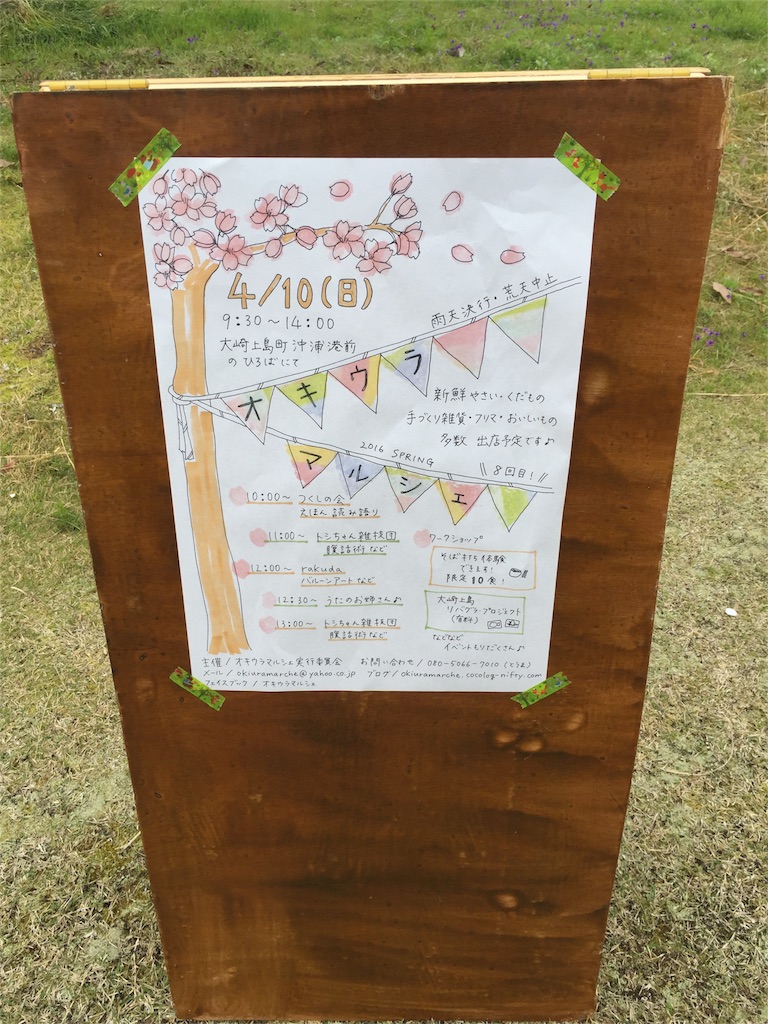 4/10(日)
9:30〜14:00
大崎上島町 沖浦港前
のひろばにて
雨天決行・荒天中止
オキウラ
新鮮やさい・くだもの
手づくり雑貨・フリマ・おいしいもの
多数 出店予定です♪
2016 SPRING
マルシェ
\\ 8回目! //
10:00〜 つくしの会
えほん読み語り
11:00〜 トシちゃん雑技団
腹話術など
12:00〜 rakuda
バルーンアートなど
12:30〜 うたのお姉さん♪
13:00〜 トシちゃん雑技団
腹話術など
ワークショップ
そば打ち体験
できます!
限定10食!
大崎上島
リバグラ・プロジェクト
(有料)
などなど
イベントもりだくさん♪
主催/オキウラマルシェ実行委員会 お問い合わせ/080-5066-7010(とうま)
メール/okiuramarche@yahoo.co.jp ブログ/okiuramarche.cocolog-nifty.com
フェイスブック/オキウラマルシェ